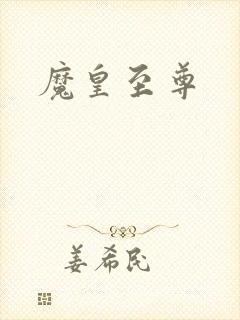 魔皇至尊
姜希民